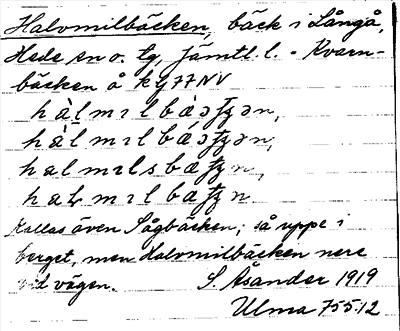 Halvmilbäcken, bäck i Långå,
Hede sn o. tg, Jämtl. l. - Kvarn-
bäcken å kg 77 NV
hàlmɪlbáəʈʂən,
hàlmɪlbǽəʈʂən,
halmɪlsbæʈʂn,
haɫmɪlbæʈʂn
Kallas även Sågbäcken, så uppe i
berget, men Halvmilbäcken nere
vid vägen. S. Åsander 1919
Ulma 755:12